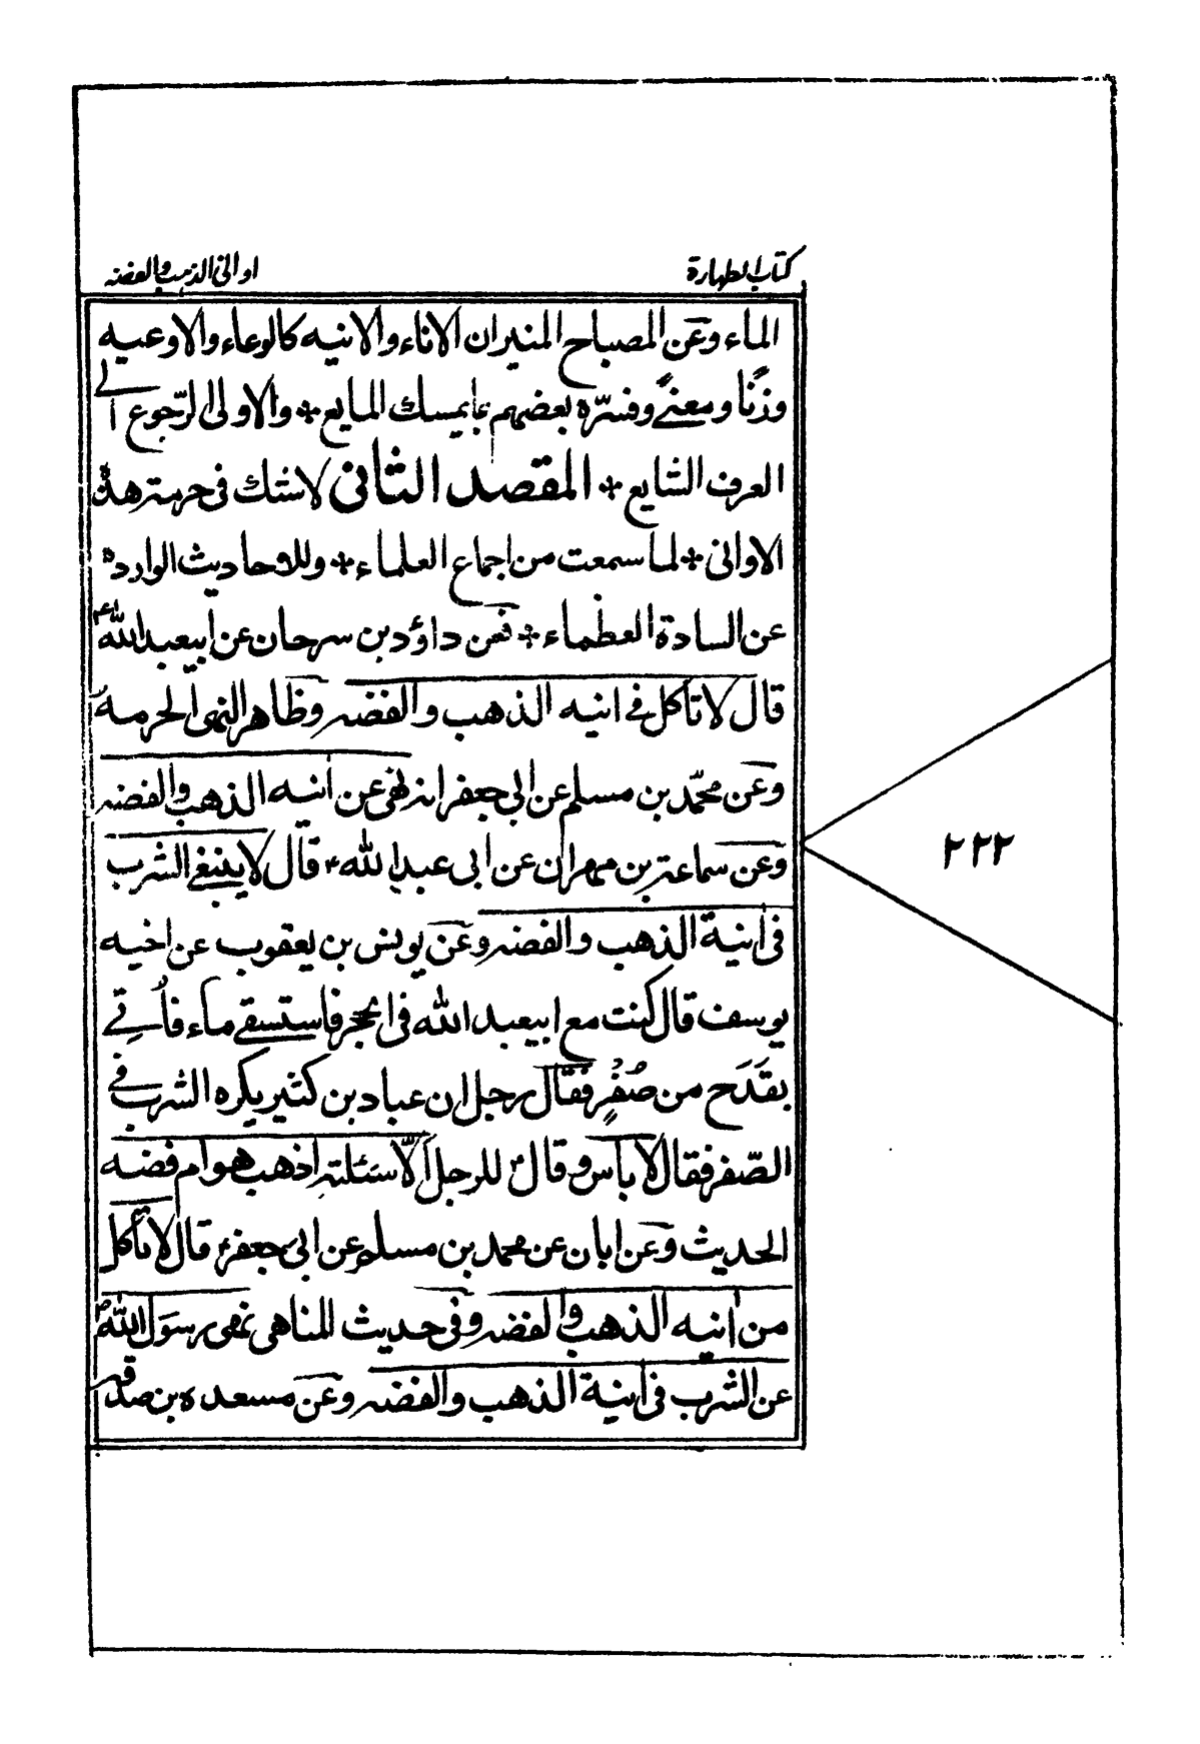 كتاب الطهارة
اواني الذهب والفضه
الماء وعن المصباح المنير ان الاناء والانيه كالوعاء والاوعيه
وزنًا ومعنىً وفسّره بعضهم بما يمسك المايع * والاولى الرّجوع الى
العرف الشايع * المقصد الثانى لا شك فى حرمة هذه
الاوانى * لما سمعت من اجماع العلماء * وللاحاديث الوارده
عن السادة العظماء * فعن داؤد بن سرحان عن ابيعبدالله ع
قال لا تاكل فى انيه الذهب والفضه وظاهر النهى الحرمه
وعن محمّد بن مسلم عن ابى جعفر انه نهى عن انيه الذهب والفضه
وعن سماعة بن مهران عن ابى عبد الله ع قال لا ينبغى الشرب
فى انية الذهب والفضه وعن يونس بن يعقوب عن اخيه
يوسف قال كنت مع ابيعبد الله فى الحجر فاستسقى ماء فاُتِى
بقَدَح من صُفْرٍ فقال رجل ان عباد بن كثير يكره الشرب فى
الصّفر فقال لا باس وقال للرجل اَلّا سَئلته اذهب هو ام فضه
الحديث وعن ابان عن محمد بن مسلم عن ابى جعفر ع قال لا تأكل
من انيه الذهب والفضه وفى حديث المناهى نهى رسول الله ص
عن الشرب فى انية الذهب والفضه وعن مسعده بن صدقه
٢٢٢